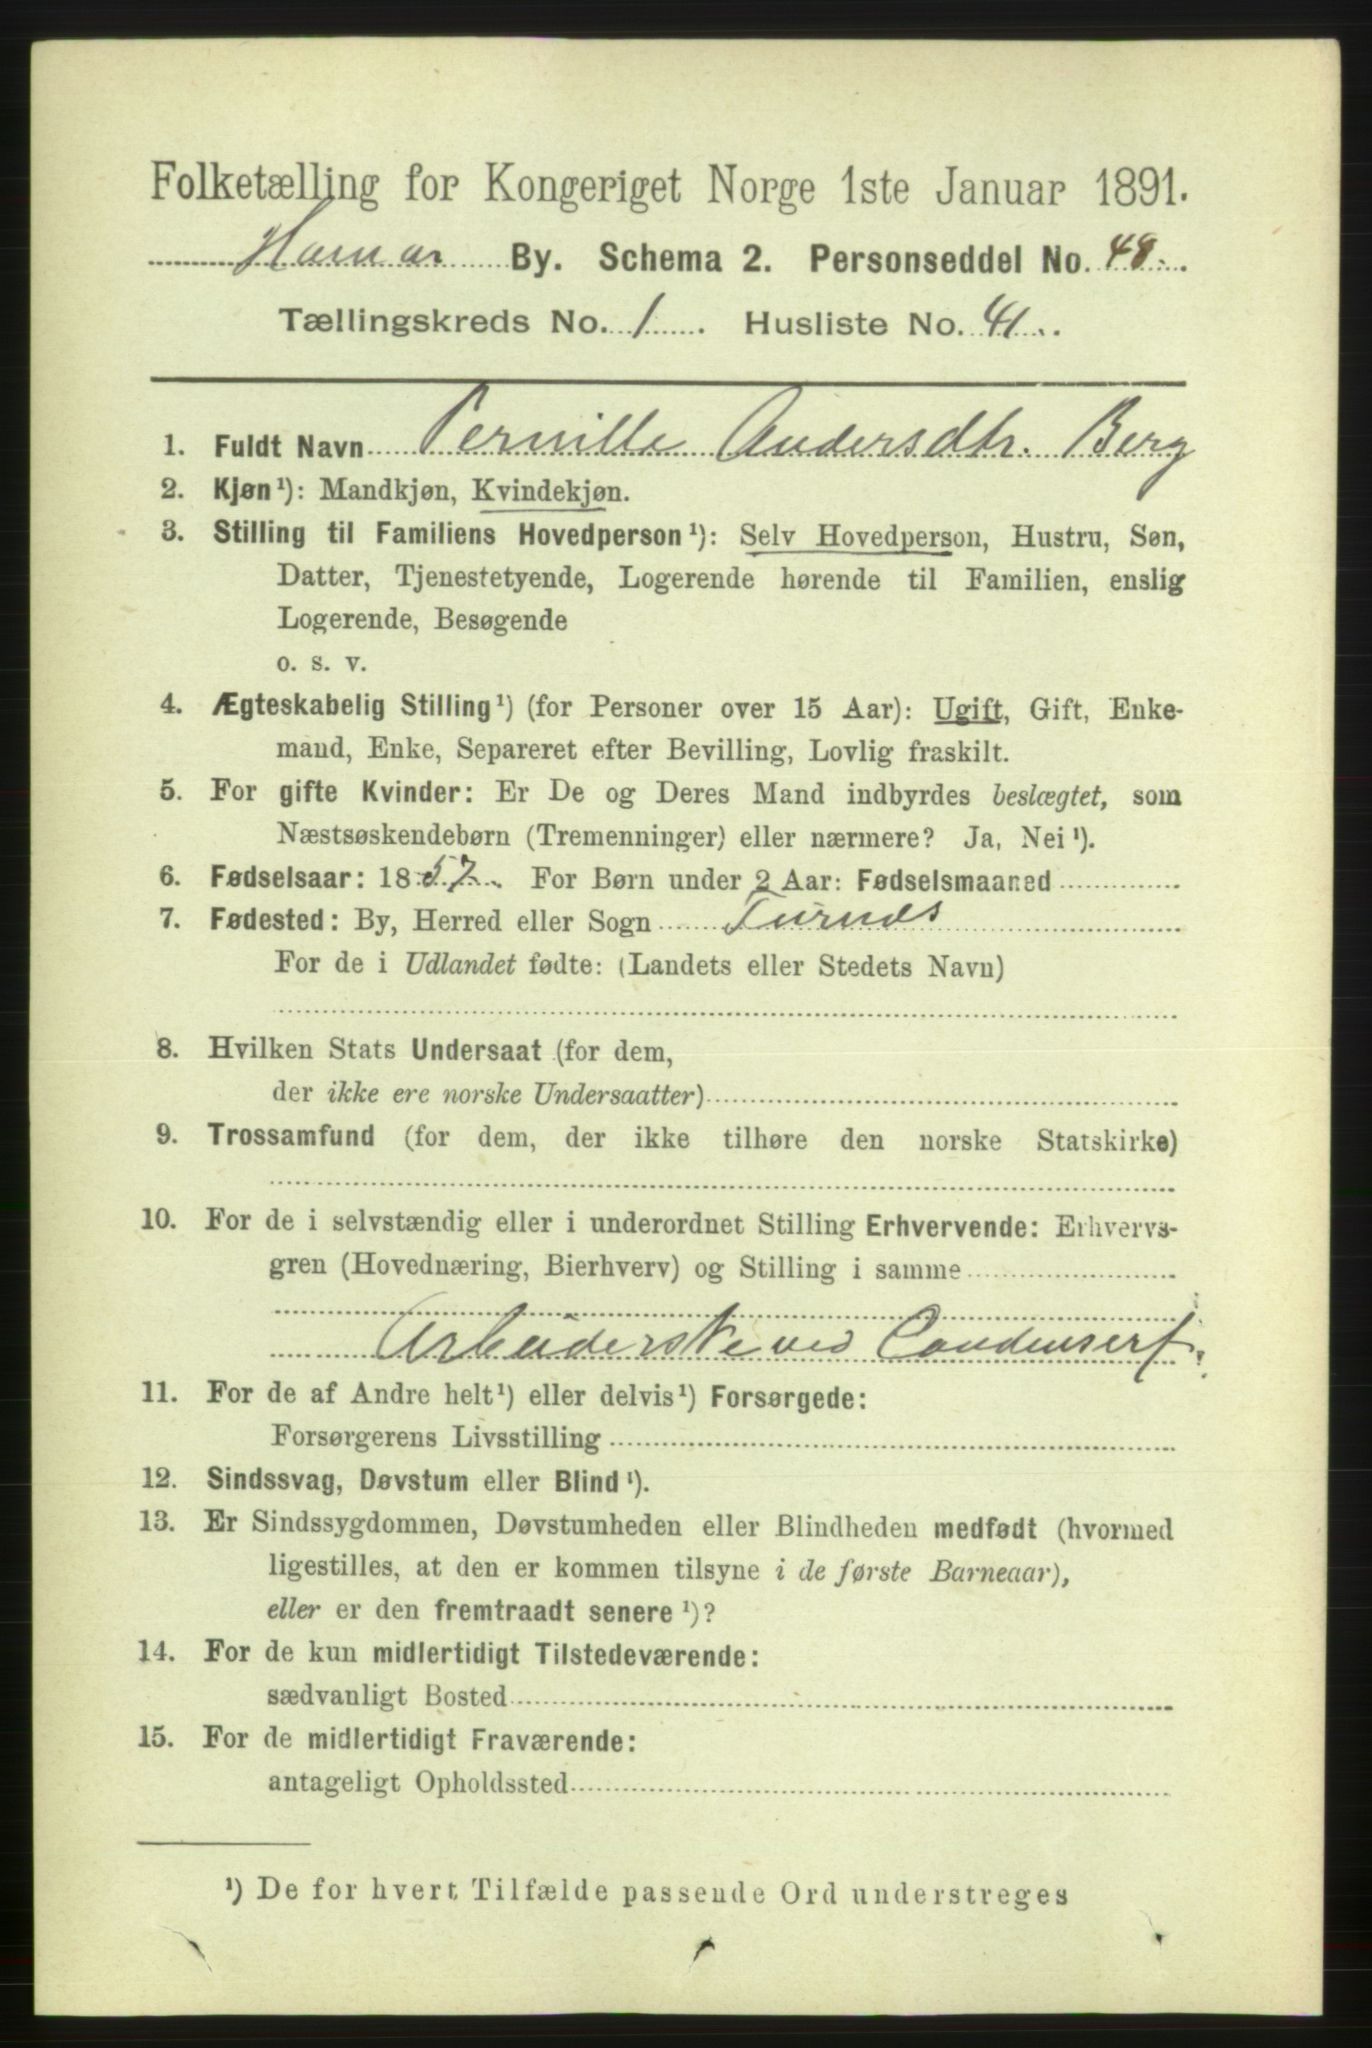 Folketælling for Kongeriget Norge 1ste Januar 1891.
Hamar By. Schema 2. Personseddel No. 48.
Tællingskreds No. 1. Husliste No. 41.
1. Fuldt Navn Pernille Andersdtr. Berg
2. Kjøn¹): Mandkjøn, Kvindekjøn.
3. Stilling til Familiens Hovedperson¹): Selv Hovedperson, Hustru, Søn,
Datter, Tjenestetyende, Logerende hørende til Familien, enslig
Logerende, Besøgende
o. s. v.
4. Ægteskabelig Stilling¹) (for Personer over 15 Aar): Ugift, Gift, Enke-
mand, Enke, Separeret efter Bevilling, Lovlig fraskilt.
5. For gifte Kvinder: Er De og Deres Mand indbyrdes beslægtet, som
Næstsøskendebørn (Tremenninger) eller nærmere? Ja, Nei¹).
6. Fødselsaar: 1857. For Børn under 2 Aar: Fødselsmaaned
7. Fødested: By, Herred eller Sogn Furnes
For de i Udlandet fødte: (Landets eller Stedets Navn)
8. Hvilken Stats Undersaat (for dem,
der ikke ere norske Undersaatter)
9. Trossamfund (for dem, der ikke tilhøre den norske Statskirke)
10. For de i selvstændig eller i underordnet Stilling Erhvervende: Erhvervs-
gren (Hovednæring, Bierhverv) og Stilling i samme
Arbeiderske ved Condenserf.
11. For de af Andre helt¹) eller delvis¹) Forsørgede:
Forsørgerens Livsstilling
12. Sindssvag, Døvstum eller Blind¹).
13. Er Sindssygdommen, Døvstumheden eller Blindheden medfødt (hvormed
ligestilles, at den er kommen tilsyne i de første Barneaar),
eller er den fremtraadt senere¹)?
14. For de kun midlertidigt Tilstedeværende:
sædvanligt Bosted
15. For de midlertidigt Fraværende:
antageligt Opholdssted
¹) De for hvert Tilfælde passende Ord understreges